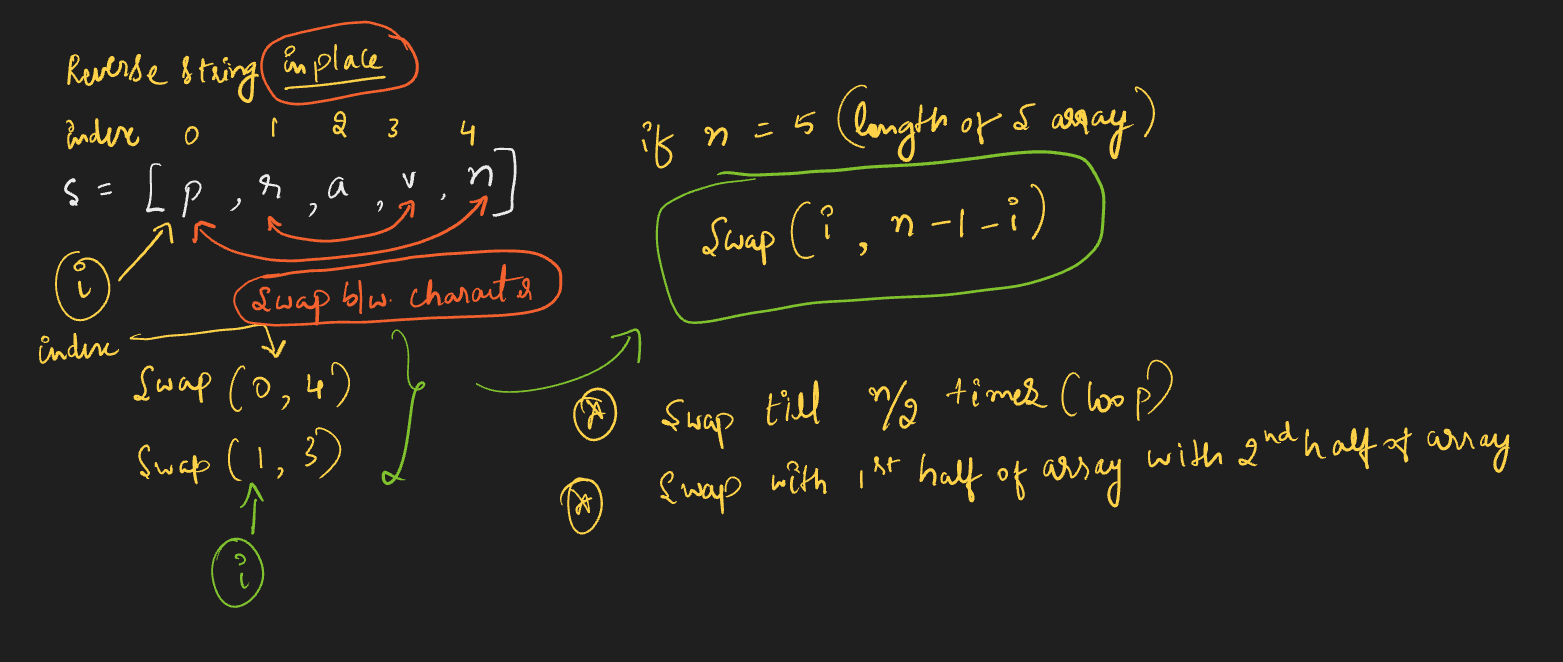 Reverse string in place
index 0 1 2 3 4
s = [p, r, a, v, n]
i
swap b/w. character
index
Swap (0, 4)
Swap (1, 3)
i
if n = 5 (length of S array)
Swap (i, n-1-i)
Swap till n/2 times (loop)
Swap with 1st half of array with 2nd half of array